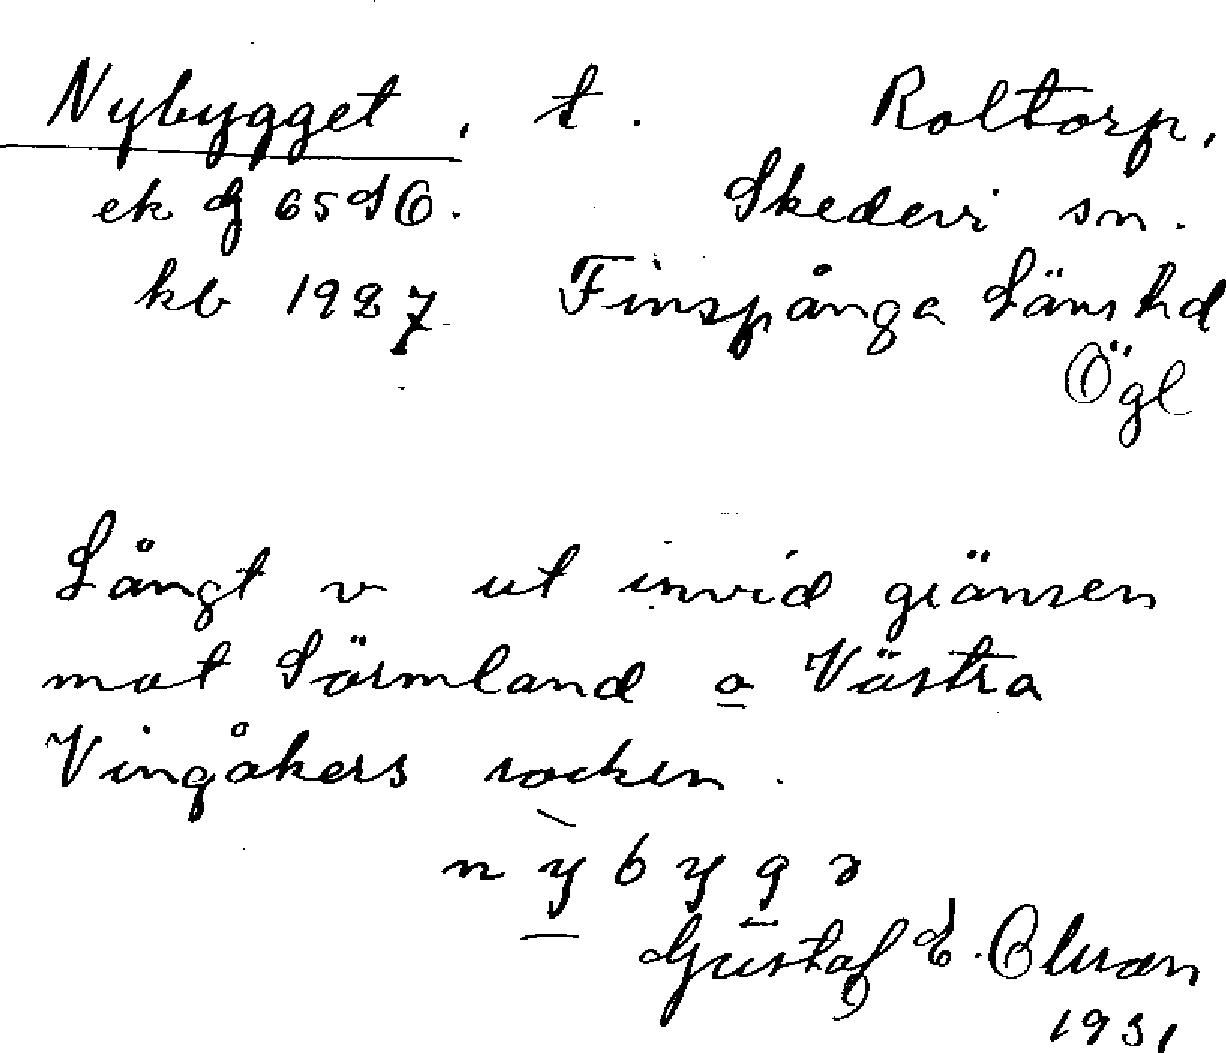 Nybygget, t. Roltorp,
ek J 65 SO. Skedevi sn.
kb 1927 Finspånga Läns hd
Ögl
Långt v ut invid gränsen
mot Sörmland o Västra
Vingåkers socken.
nỳbygə
Gustaf E. Olsson
1931